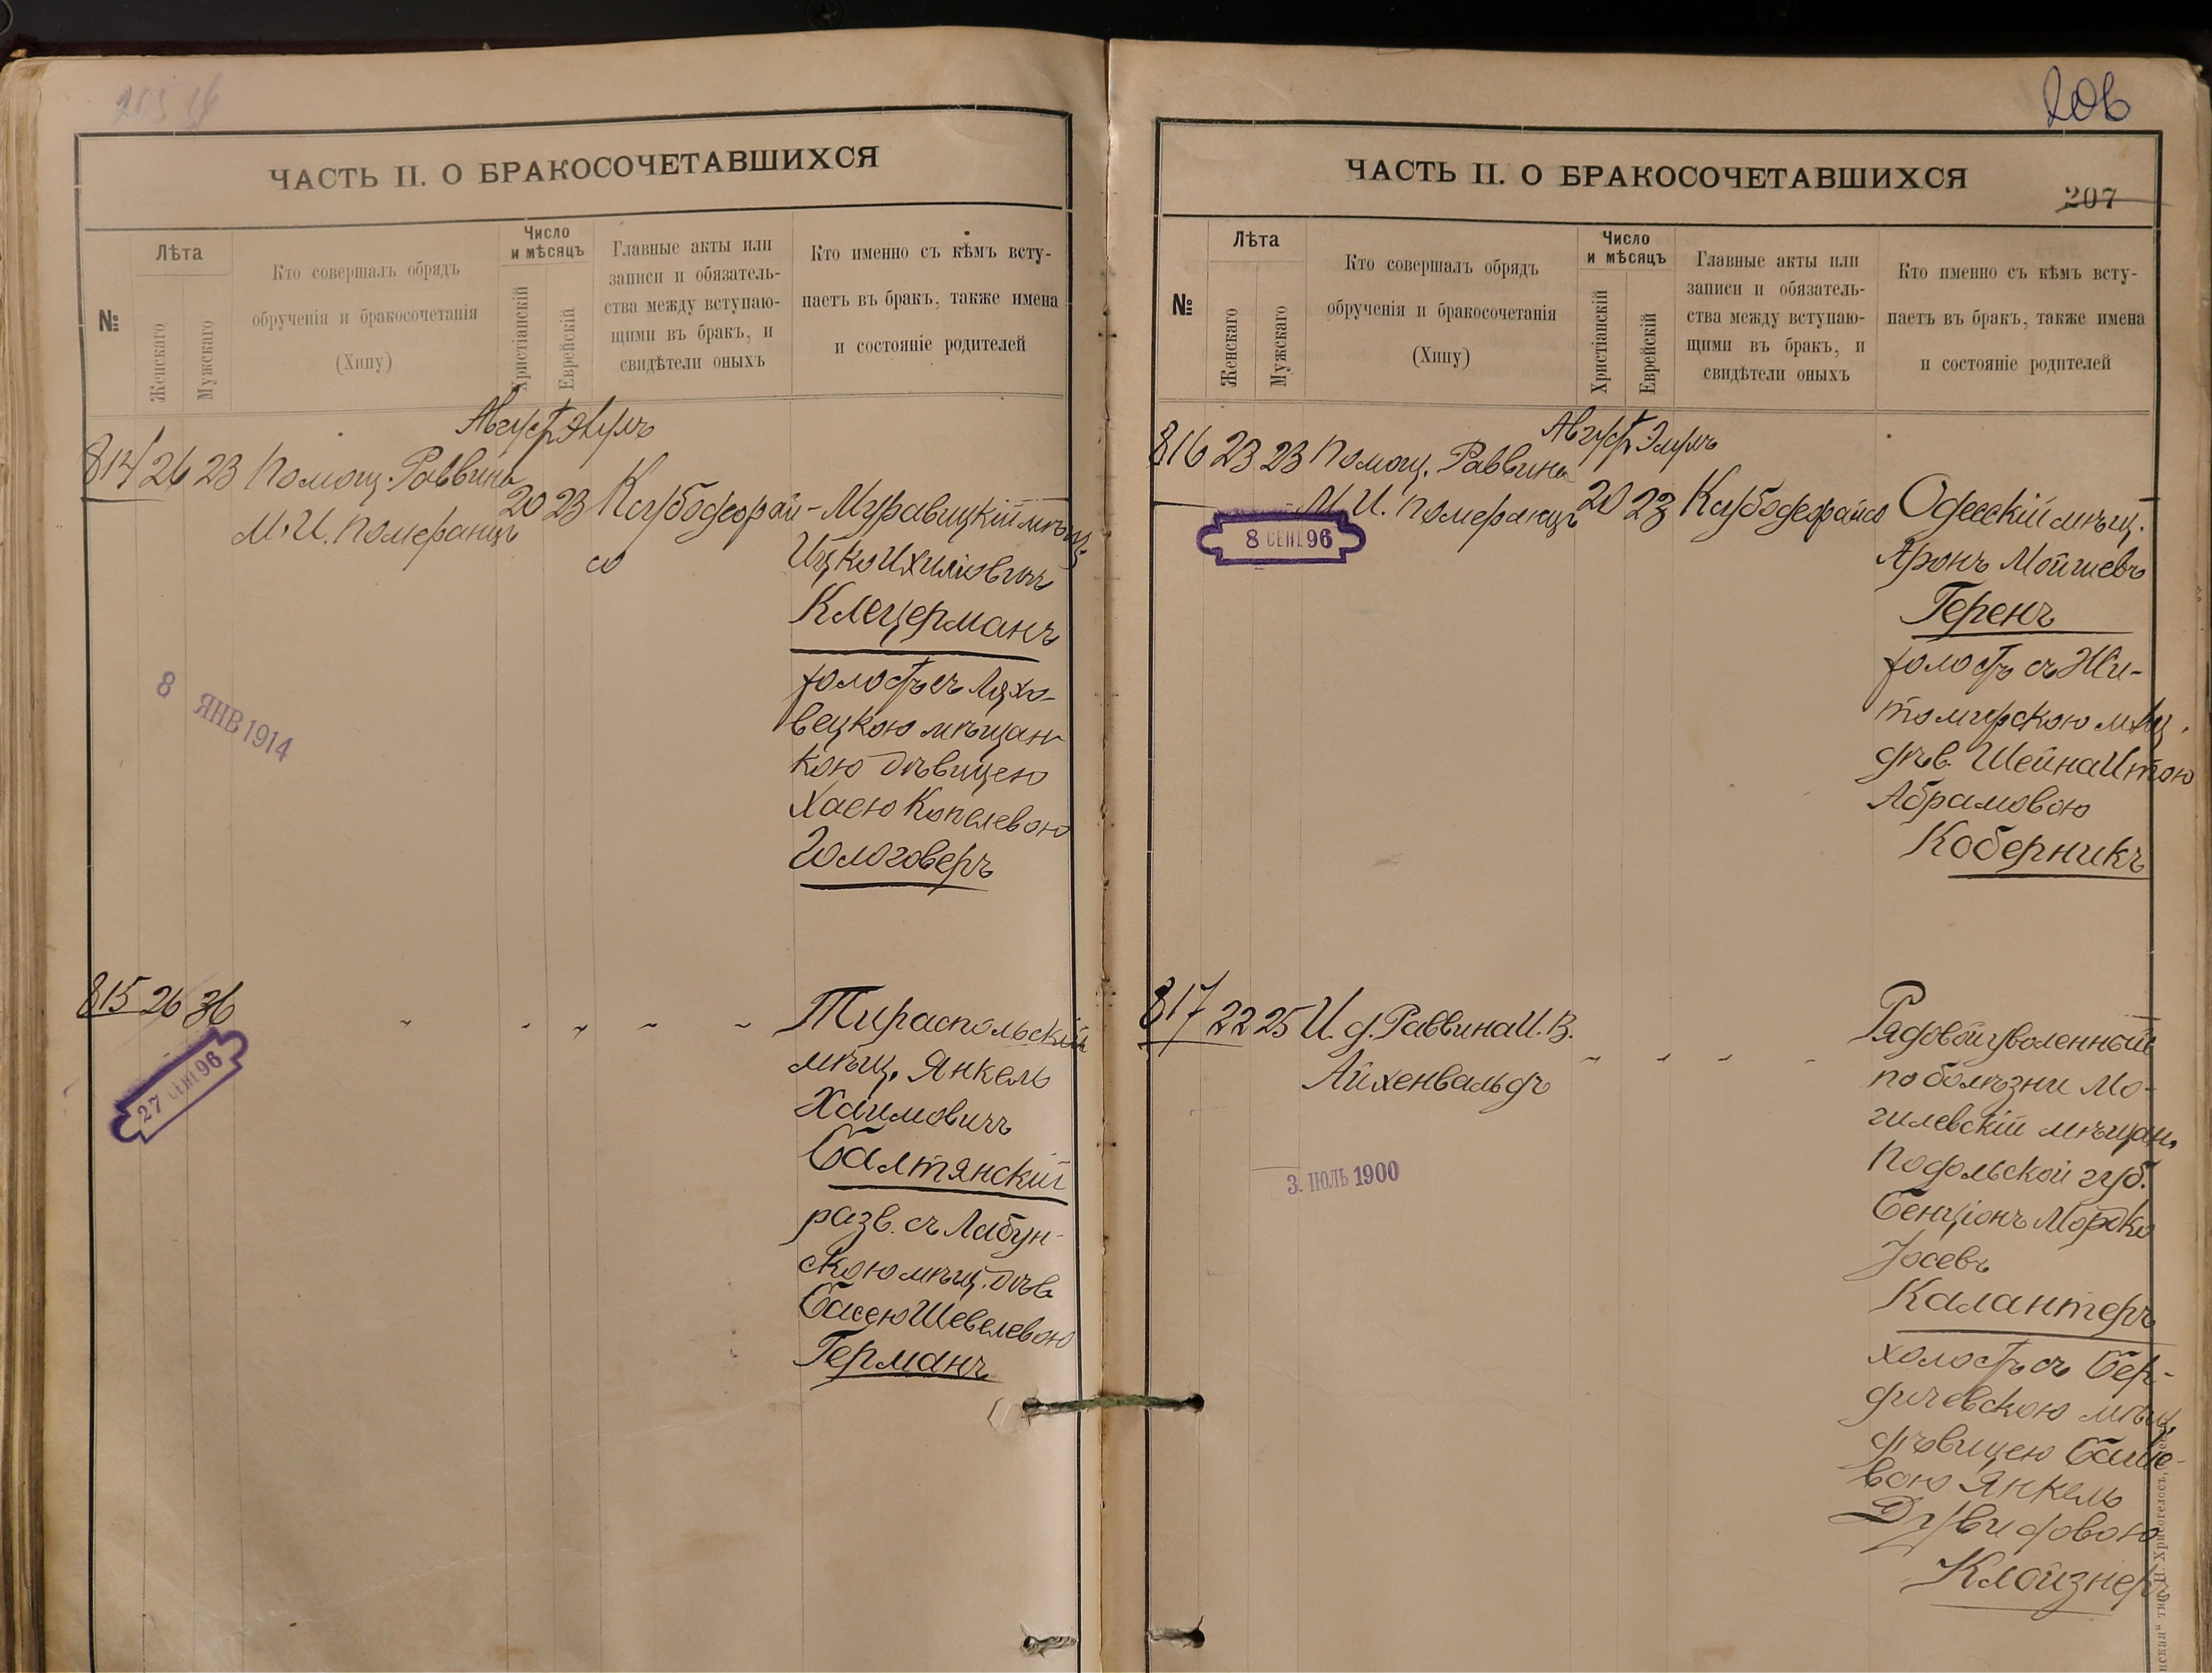 206
ЧАСТЬ II. О БРАКОСОЧЕТАВШИХСЯ
№
Лѣта
Женскаго
Мужскаго
Кто совершалъ обрядъ
обрученія и бракосочетанія
(Хипу)
Число
и мѣсяцъ
Христіанскій
Еврейскій
Главные акты или
записи и обязатель-
ства между вступаю-
щими въ бракъ, и
свидѣтели оныхъ
Кто именно съ кѣмъ всту-
паетъ въ бракъ, также имена
и состояніе родителей
Августъ Элулъ
814 26 23 Помощ. Раввина
М. И. Померанцъ
20 23
Муравицкій мѣщ.
Ицко Ихиліовичъ
Клецерманъ
холостъ съ Ляхо-
вецкою мѣщан-
кою дѣвицею
Хаею Копелевою
Гологоверъ
8 ЯНВ 1914
815 26 36
27 СЕНТ 96
Тираспольскій
мѣщ. Янкель
Хаимовичъ
Балтянскій
разв. съ Лабун-
скою мѣщ. дѣв
Басею Шевелевою
Германъ
ЧАСТЬ II. О БРАКОСОЧЕТАВШИХСЯ
207
№
Лѣта
Женскаго
Мужскаго
Кто совершалъ обрядъ
обрученія и бракосочетанія
(Хипу)
Число
и мѣсяцъ
Христіанскій
Еврейскій
Главные акты или
записи и обязатель-
ства между вступаю-
щими въ бракъ, и
свидѣтели оныхъ
Кто именно съ кѣмъ всту-
паетъ въ бракъ, также имена
и состояніе родителей
Августъ Элулъ
816 23 23 Помощ. Раввина
М. И. Померанцъ
20 23
8 СЕНТ 96
Одесскій мѣщ.
Аронъ Мойшевъ
Геренъ
холостъ съ Жи-
томирскою мѣщ.
дѣв. Шейна Итою
Абрамовою
Коберникъ
817 22 25 И. д. Раввина И. В.
Айхенвальдъ
3. ІЮЛЬ 1900
Рядовой уволенный
по болѣзни Мо-
гилевскій мѣщан.
Подольской губ.
Бенціонъ Мордко
Іосевъ
Калантеръ
холостъ съ Бер-
дичевскою мѣщ.
дѣвицею
вою Янкель
Дувидовою
Клойзнеръ